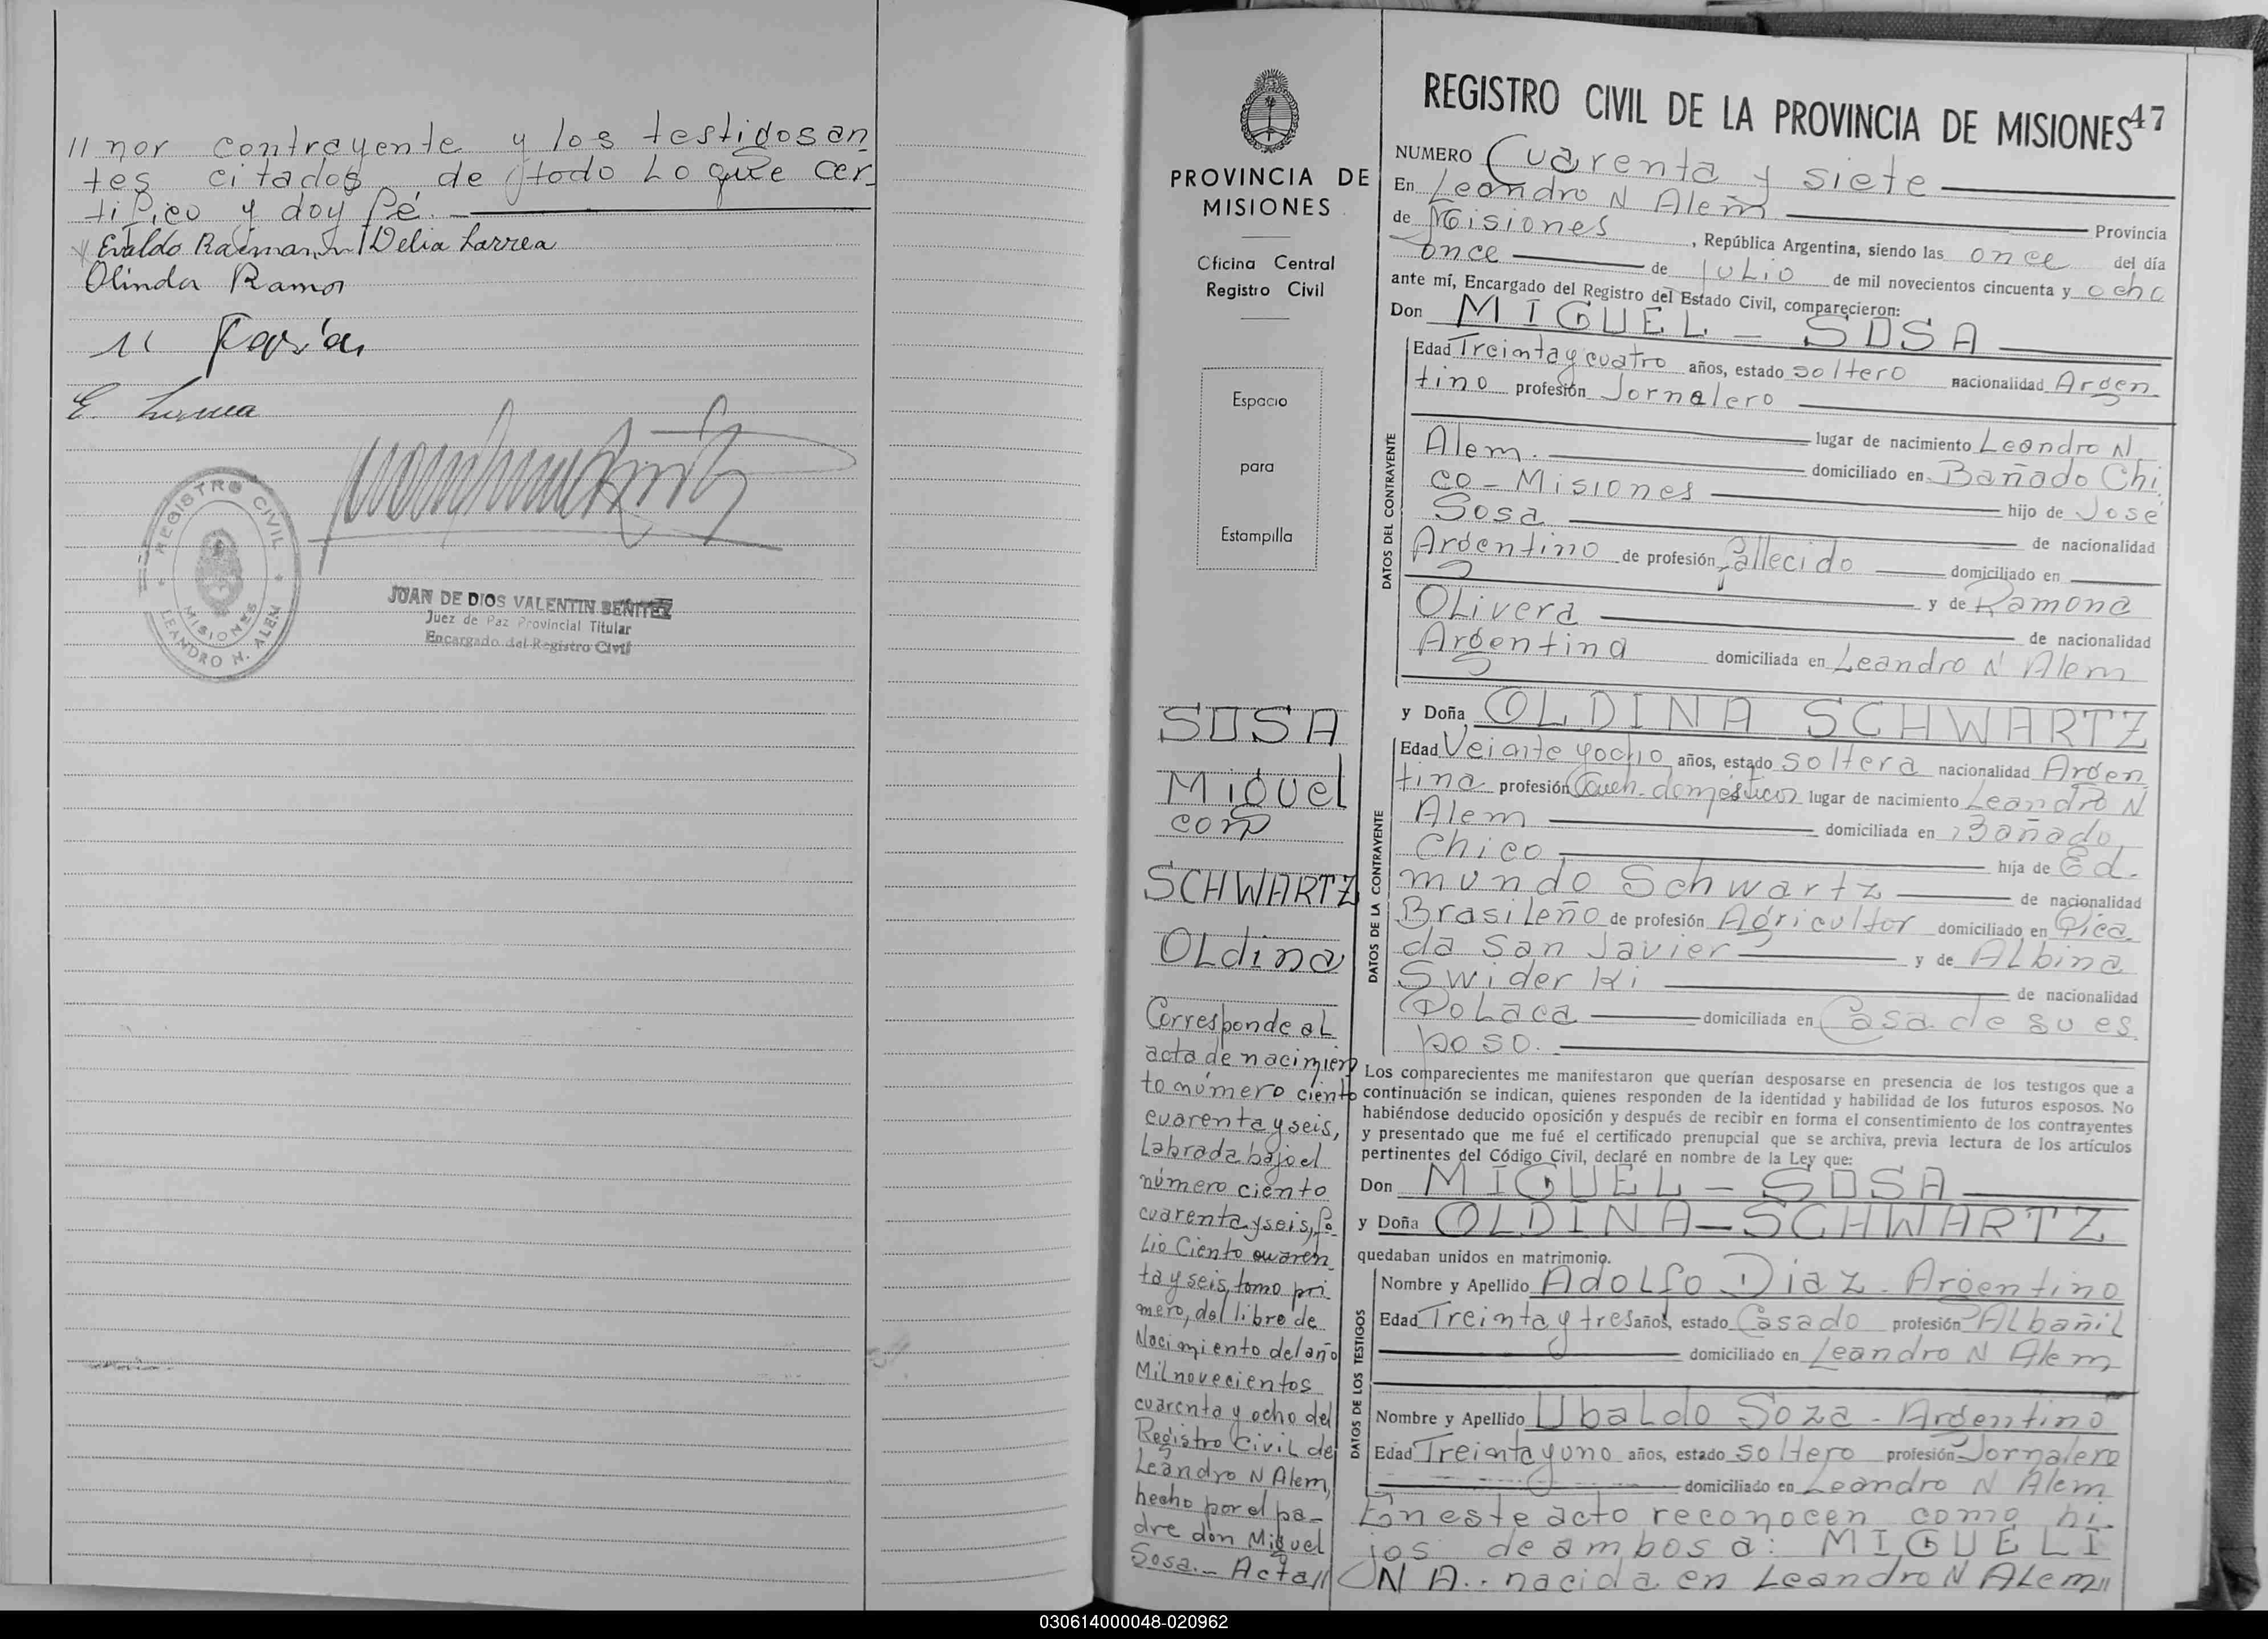 // nor contrayente y los testigos an-
tes citados, de todo Lo que cer-
tifico y doy fé.
Evaldo Raimann Delia Larrea
Olinda Ramos
E. Larrea
REGISTRO CIVIL
MISIONES
LEANDRO N. ALEM
JUAN DE DIOS VALENTIN BENITEZ
Juez de Paz Provincial Titular
Encargado del Registro Civil
PROVINCIA DE
MISIONES
Oficina Central
Registro Civil
Espacio
para
Estampilla
SOSA
Miguel
con
SCHWARTZ
OLdina
Corresponde aL
acta de nacimien
to número ciento
cuarenta y seis,
Labrada bajo el
número ciento
cuarenta y seis, fo-
Lio Ciento cuaren-
ta y seis, tomo pri-
mero, del libro de
Nacimiento del año
Mil novecientos
cuarenta y ocho del
Registro Civil de
Leandro N Alem,
hecho por el pa-
dre don Miguel
Sosa.- Acta//
REGISTRO CIVIL DE LA PROVINCIA DE MISIONES 47
NUMERO Cuarenta y siete
En Leandro N Alem Provincia
de Misiones, República Argentina, siendo las once del día
once de juLio de mil novecientos cincuenta y ocho
ante mí, Encargado del Registro del Estado Civil, comparecieron:
Don MIGUEL - SOSA
DATOS DEL CONTRAYENTE
Edad Treinta y cuatro años, estado soltero nacionalidad Argen
tino profesión Jornalero
lugar de nacimiento Leandro N
Alem. domiciliado en Bañado Chi
co - Misiones hijo de José
Sosa de nacionalidad
Argentino de profesión fallecido domiciliado en
y de Ramona
OLivera de nacionalidad
Argentina domiciliada en Leandro N Alem
y Doña OLDINA SCHWARTZ
DATOS DE LA CONTRAYENTE
Edad Veinte y ocho años, estado soltera nacionalidad Argen
tina profesión Queh. domésticos lugar de nacimiento Leandro N
Alem domiciliada en Bañado
Chico hija de Ed-
mundo Schwartz de nacionalidad
BrasiLeño de profesión Agricultor domiciliado en Pica
da San Javier y de ALbina
Swider Ki de nacionalidad
PoLaca domiciliada en Casa de su es
poso.
Los comparecientes me manifestaron que querían desposarse en presencia de los testigos que a
continuación se indican, quienes responden de la identidad y habilidad de los futuros esposos. No
habiéndose deducido oposición y después de recibir en forma el consentimiento de los contrayentes
y presentado que me fué el certificado prenupcial que se archiva, previa lectura de los artículos
pertinentes del Código Civil, declaré en nombre de la Ley que:
Don MIGUEL - SOSA
y Doña OLDINA - SCHWARTZ
quedaban unidos en matrimonio.
DATOS DE LOS TESTIGOS
Nombre y Apellido AdoLfo Diaz - Argentino
Edad Treinta y tres años, estado Casado profesión ALbañil
domiciliado en Leandro N Alem
Nombre y Apellido UbaLdo Soza - Argentino
Edad Treinta y uno años, estado soltero profesión Jornalero
domiciliado en Leandro N Alem
En este acto reconocen como hi-
jos de ambos a: MIGUELI
NA.. nacida en Leandro N ALem//
030614000048-020962